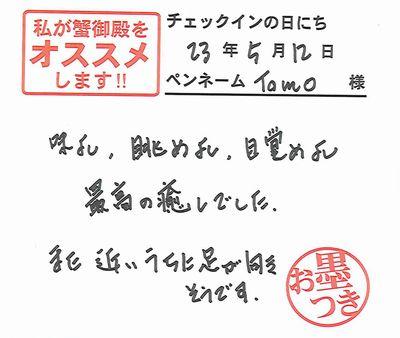 私が蟹御殿を
オススメ
します!!
チェックインの日にち
23年5月12日
ペンネーム Tomo 様
味よし、眺めよし、目覚めよし
最高の癒しでした.
また 近いうちに足が向き
そうです.
お墨つき